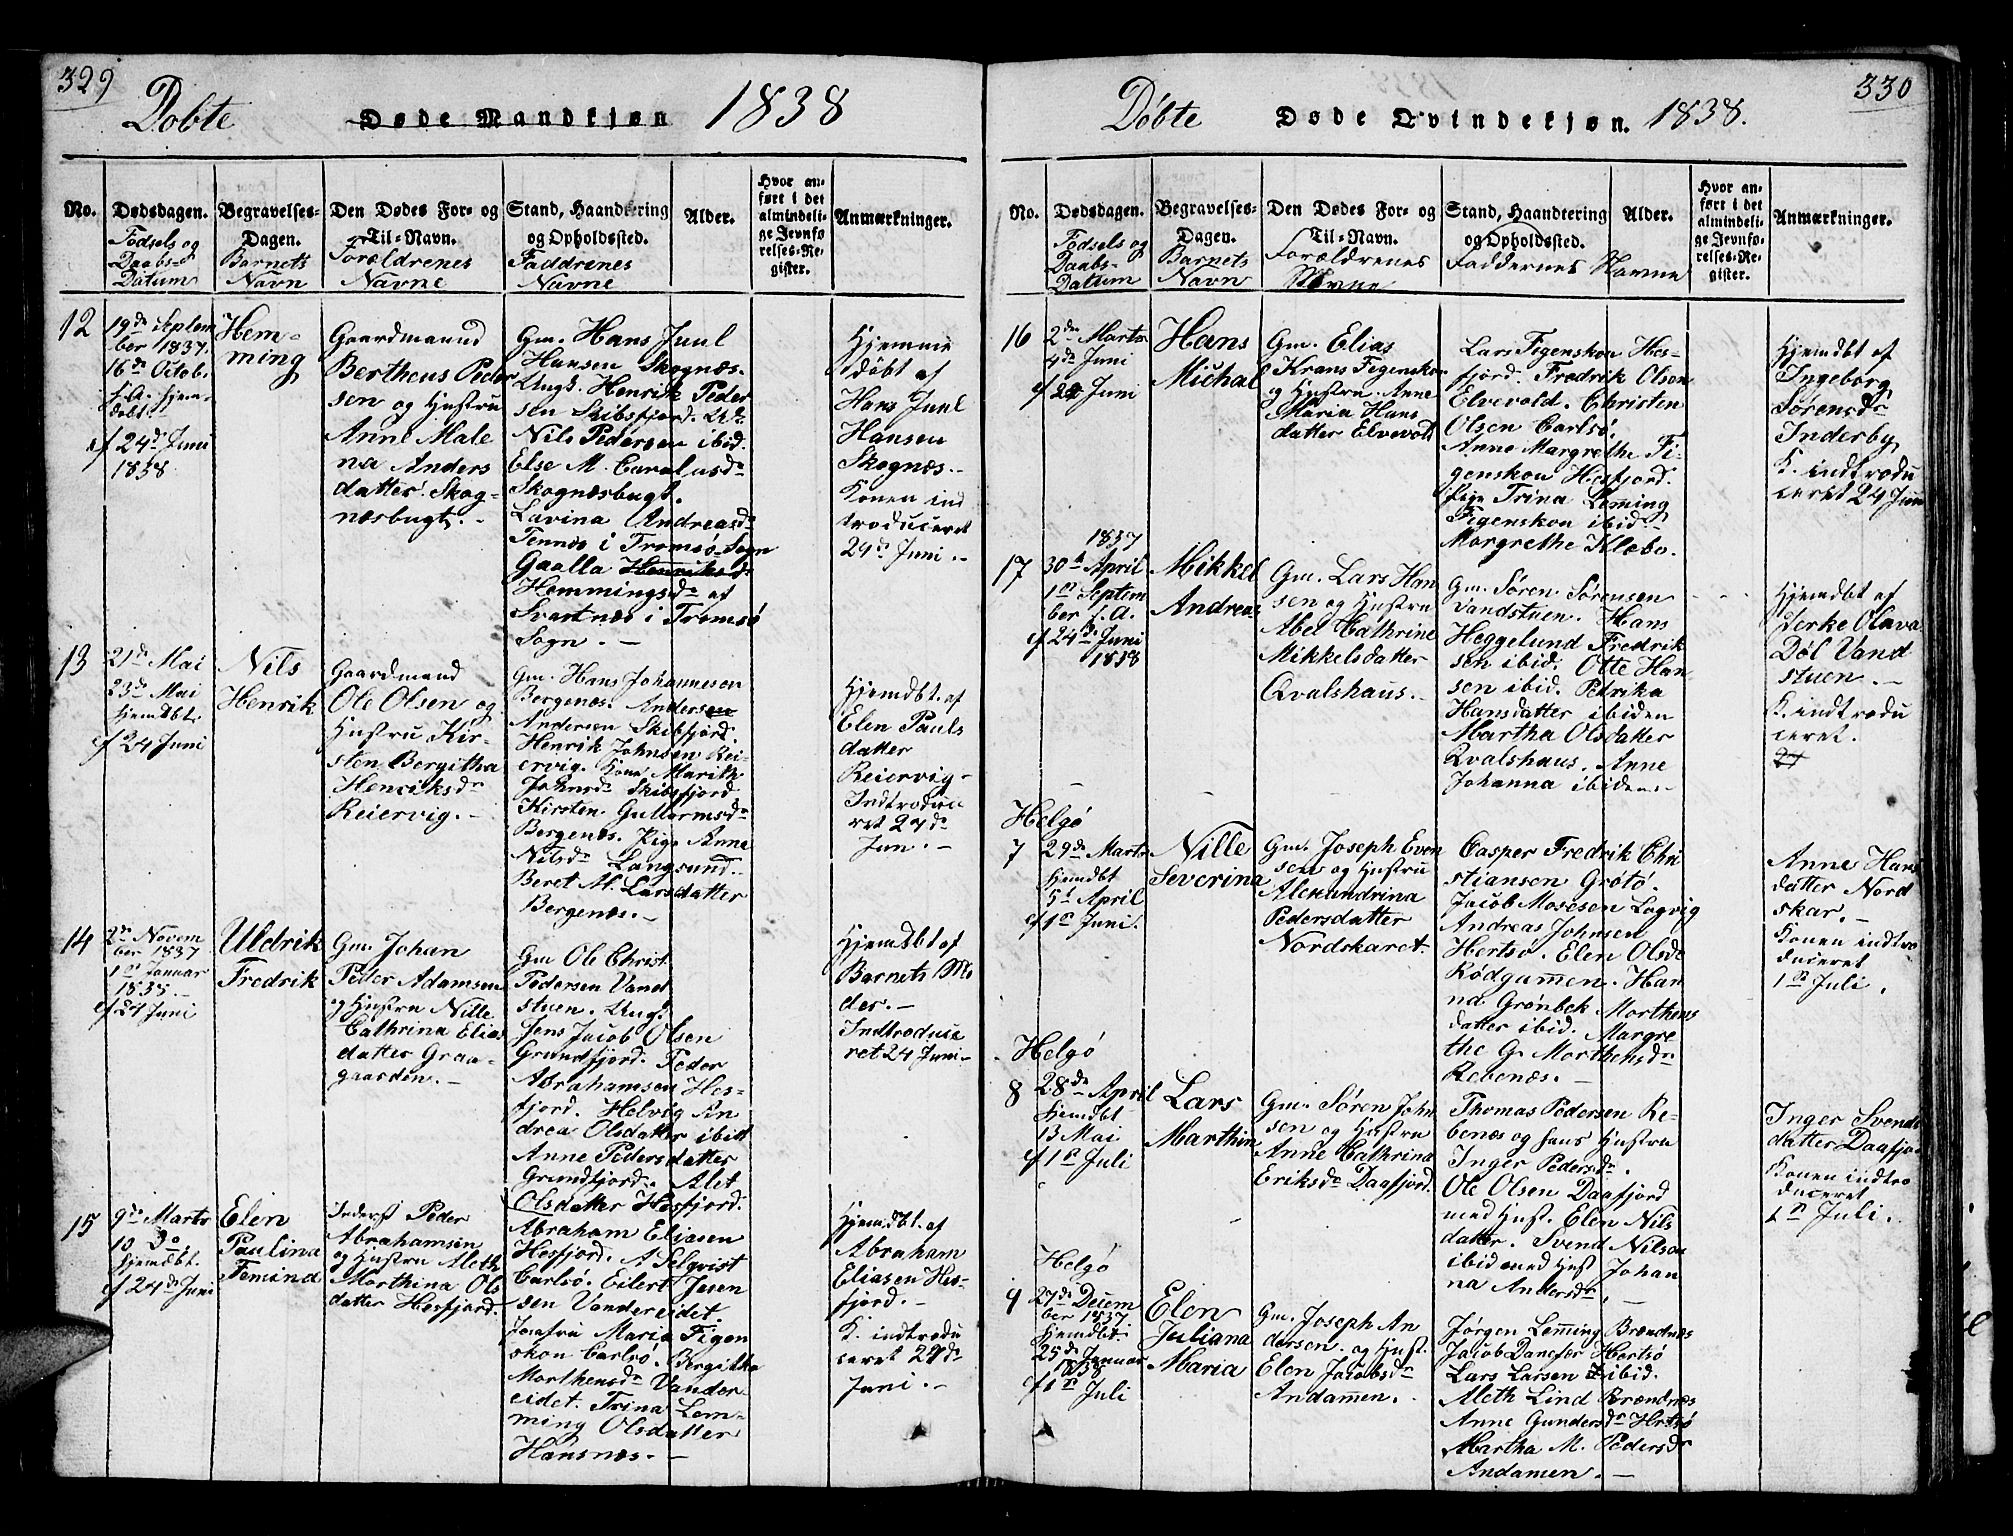 329
Døbte Døde Mandkjøn 1838
No.
Dødsdagen.
Fødsels og
Daabs-
Datum
Begravelses-
Dagen.
Barnets
Navn
Den Dødes For- og
Til-Navn.
Forældrenes
Navne
Stand, Haandtering
og Opholdssted.
Faddrenes
Navne
Alder.
Hvor an-
ført i det
almindeli-
ge Jevnfø-
relses-Re-
gister.
Anmærkninger.
12
19de Septem
ber 1837.
16de Octob.
s. A. hjem-
døbt.
ef 24de Juni
1838
Hem-
ming
Gaardmand
Bertheus Peder
sen og Hustru
Anne Male
na Anders
datter Skog-
næsbugt. -
Gm. Hans Juul
Hansen Skognæs.
Ungk. Henrik Peder
sen Skibsfjord.
Nils Pedersen ibid.
Else M. Carolusdr
Skognæsbugt.
Lavina Andreasdr
Tennes i Tromsø Sogn
Gaalla Henriksdr
Hemmingsdr af
Svartnæs i Tromsø
Sogn. -
Hjemme
døbt af
Hans Juul
Hansen
Skognæs. -
Konen ind
troduceret
24de Juni. -
13
21de Mai
23de Mai
hjemdbt.
ef 24 Juni
Nils
Henrik
Gaardmand
Ole Olsen og
Hustru Kir-
sten Bergitha
Henriksdr
Reiervig. -
Gm. Hans Johannesen
Bergenæs. Andersen
Andersen Skibsfjord
Henrik Johnsen Rei-
ervig. Kone Marith
Johnsdr Skibsfjord
Kirsten Gullormsdr
Bergenæs. Pige Anne
Nilsdr Langsund. -
Beret M. Larsdatter
Bergenæs. -
Hjemdbt. af
Elen Pauls
datter
Reiervig -
Introduce
ret 24de
Jun. -
14
2den Novem
ber 1837
1ste Januar
1838. -
ef 24 Juni
Uldrik
Fredrik
Gm. Johan
Peder Adamsen
og Hustru Nille
Cathrina Elias
datter Graa-
gaarden. -
Gm Ole Christ.
Pedersen Vand
stuen. Ungk.
Jens Jacob Olsen
Grundfjord. Peder
Abrahamsen Hes-
fjord. Helvig An
drea Olsdatter ibid
Anne Pedersdatter
Grundfjord. Alet
Olsdatter Hesfjord.
Hjemdbt af
Barnets Mo
der. -
Introduce
ret 24 Juni -
15
9de Marts
10 Do.
hjemdbt.
ef 24de Juni
Elen
Paulina
Femind
Inderst Peder
Abrahamsen
og Hustru Aleth
Morthina Ols
datter Hesfjord.
Abraham Eliasen
Hesfjord. A Selqvist
Carlsø. Eilert Jesen
sen Vandereidet.
Jomfru Maria Figen
skou Carlsø. Bergitha
Morthensdr Vander-
eidet. Trina Lem-
ming Olsdatter
Hansnæs. -
Hjemdbt. af
Abraham
Eliasen Hes-
fjord. -
K. indtrodu
ceret 24de
Juni. -
330
Døbte Døde Qvindekjøn. 1838.
No.
Dødsdagen.
Fødsels og
Daabs-
Datum
Begravelses-
Dagen.
Barnets
Navn
Den Dødes For- og
Til-Navn.
Forældrenes
Navne
Stand, Haandtering
og Opholdssted.
Faddernes Navne
Alder.
Hvor an-
ført i det
almindeli-
ge Jevnfø-
relses-Re-
gister.
Anmærkninger.
16
2den Marts
4de Juni
ef 24 Juni
Hans
Michal
Gm. Elias
Krans Figenskou
og Hustru Anne
Maria Hans
datter Elvevold
Lars Figenskou Hes-
fjord. Fredrik Olsen
Elvevold. Christen
Olsen Carlsø.
Anne Margrethe Fi-
genskou Hesfjord.
Pige Trina Leming
Figenskou ibid
Margrethe Klæbo.
Hjemdbt af
Ingeborg
Sørensdr
Inderby
K. indtrodu
ceret 24 Juni
17
1837
30te April
1ste Septem
ber s. A.
ef 24de Juni
1838
Mikkel
Andreas
Gm. Lars Han
sen og Hustru
Abel Cathrine
Mikkelsdatter
Qvalshaus. -
Gm. Søren Sørensen
Vandstuen. Hans
Heggelund Fredrik
sen ibid. Otte Han
sen ibid. Pedrika
Hansdatter ibiden
Martha Olsdatter
Qvalshaus. Anne
Johanna ibidem -
Hjemdbt af
Jerke Olava
Døl Vand
stuen. -
K. indtrodu
ceret.
24
Helgø
7
29de Marts
hjemdbt
5te April
ef 1ste Juni.
Nille
Severina
Gm. Joseph Even
sen og Hustru
Alexandrina
Pedersdatter
Nordskaret.
Casper Fredrik Chri
stiansen Grøtø.
Jacob Mosesen Løgvig
Andreas Johnsen
Hertsø. Elen Olsdr
Rødgammen. Han
na Grønbek Morthens
datter ibid. Margre
the G. Morthensdr
Rebenæs. -
Anne Hans
datter Nord
skar. -
Konen indtro
duceret
1ste Juli.
Helgø
8
28de April
hjemdbt
13 Mai
ef 1ste Juli
Lars
Marthin
Gm. Søren John
sen og Hustru
Anne Cathrina
Eriksdr Daafjord.
Thomas Pedersen Re-
benæs og hans Hustru
Inger Pedersdr.
Ole Olsen Daafjord
med Hust. Elen Nils
datter. Svend Nilsen
ibid med Hust Johan
na Andersdr. -
Inger Svends
datter Daafjo
Konen indtro
duceret
1ste Juli.
Helgø
9
27de Decem
ber 1837
hjemdbt.
25de Januar
1838
ef 1ste Juli
Elen
Juliana
Maria
Gm. Joseph An
dersen. og Hust.
Elen Jacobsdr
Andammen.
Jørgen Lemming Brændnæs
Jacob Danefær Hertsø
Lars Larsen ibid.
Aleth Lind Brændnæs
Anne Gundersdr Hertsø
Martha M. Pedersdr
Andamen. -